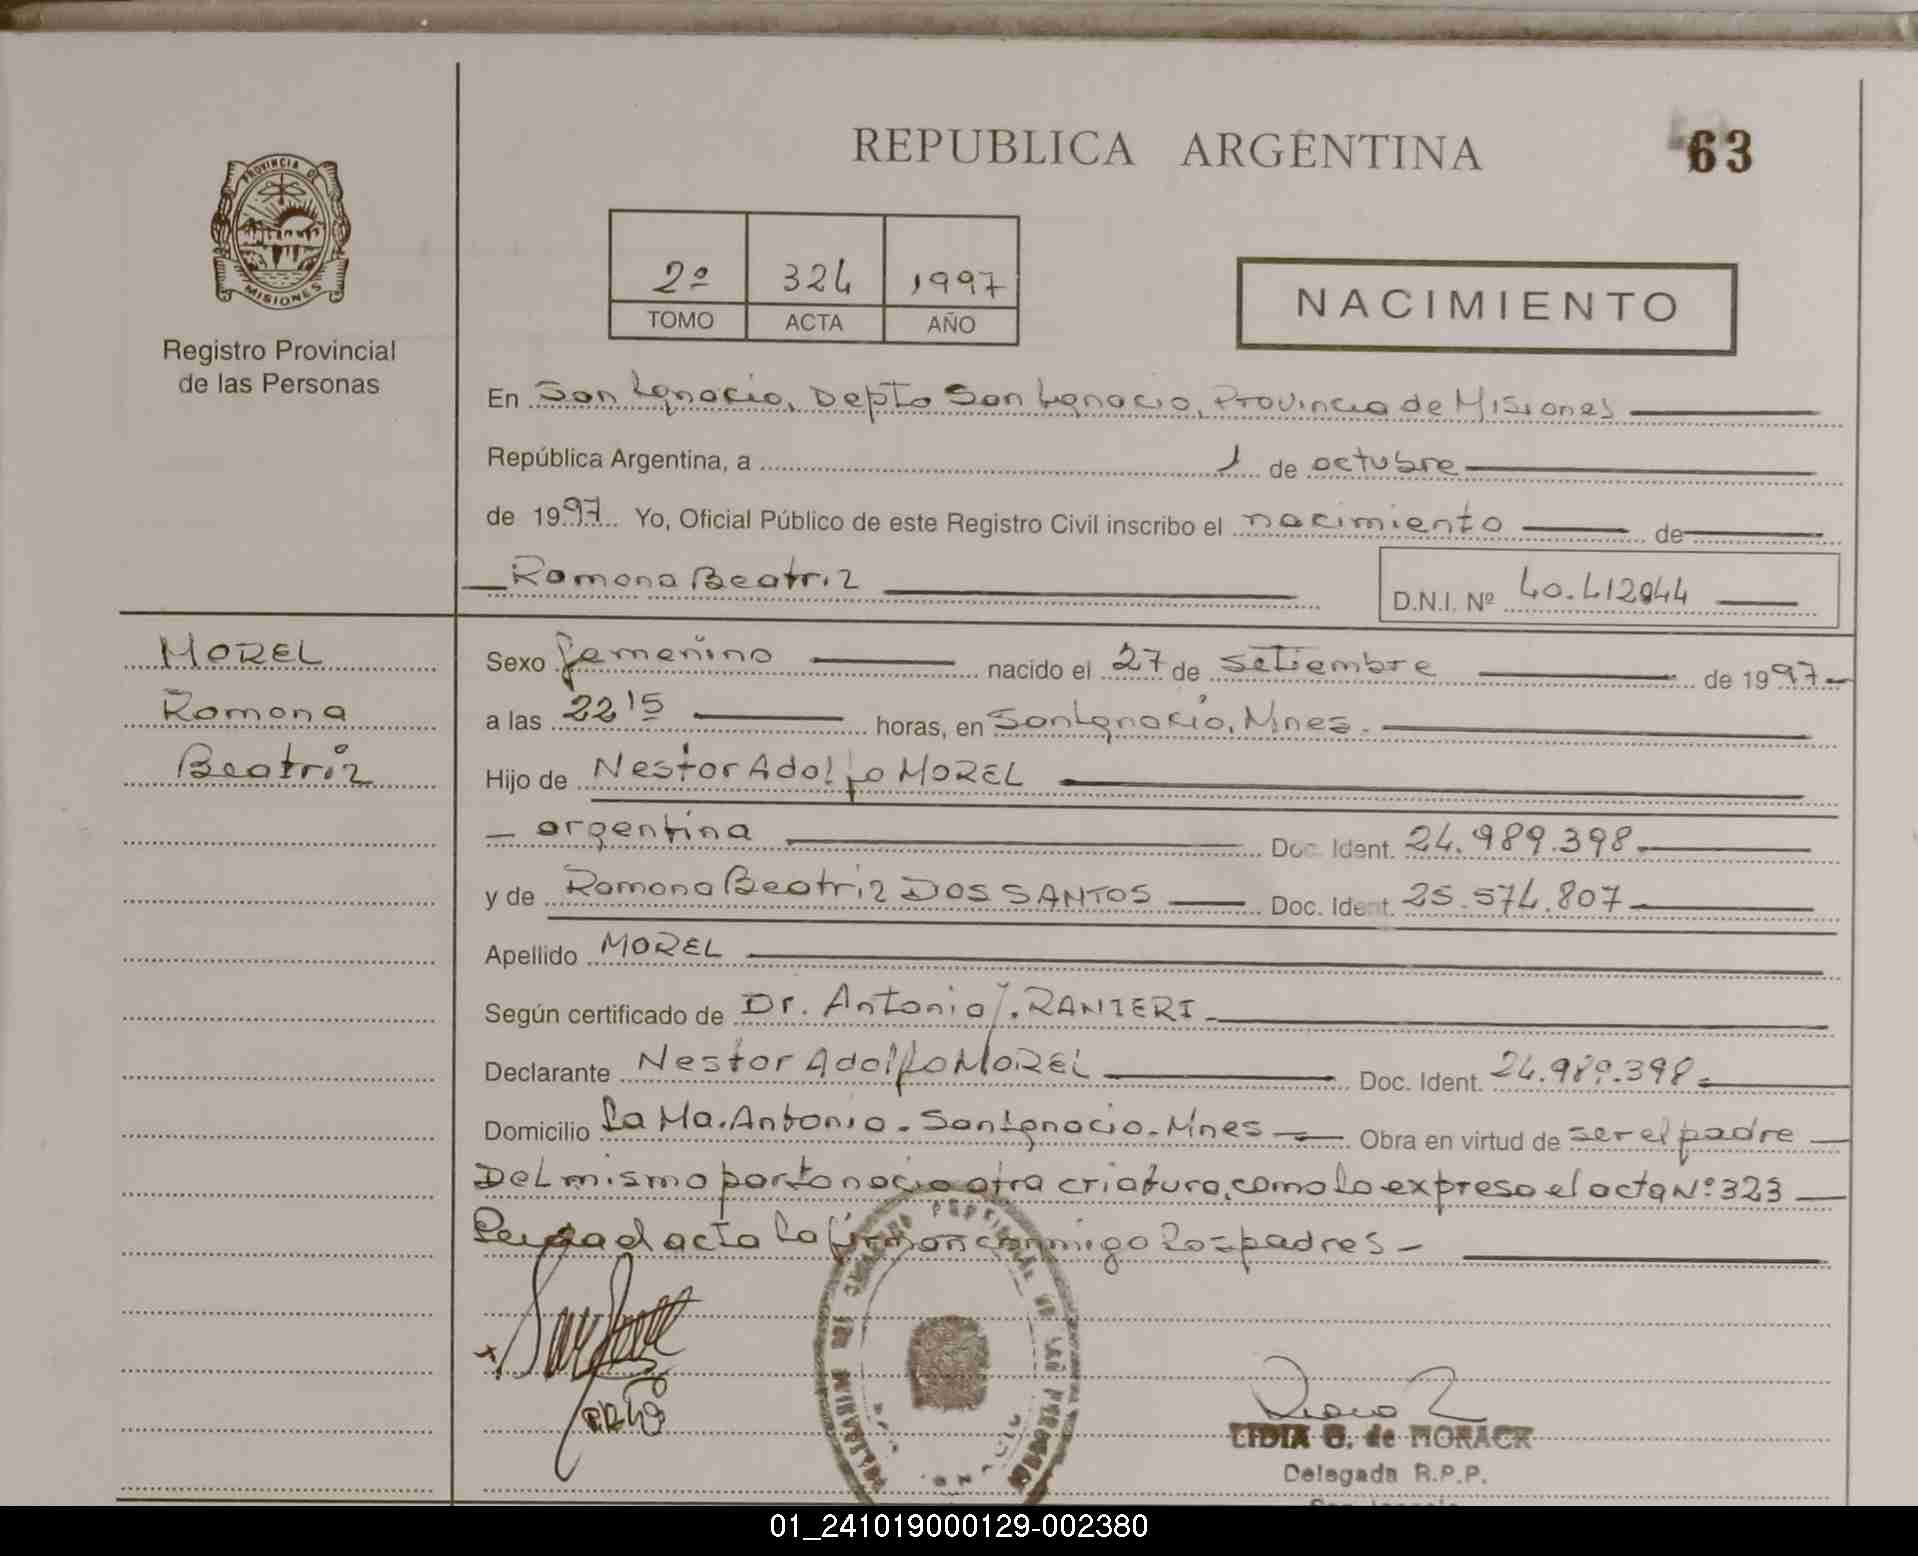 REPUBLICA ARGENTINA
63
PROVINCIA DE
MISIONES
Registro Provincial
de las Personas
2º 324 1997
TOMO ACTA AÑO
NACIMIENTO
En San Ignacio, Depto San Ignacio, Provincia de Misiones
República Argentina, a 1 de octubre
de 1997 Yo, Oficial Público de este Registro Civil inscribo el nacimiento de
Ramona Beatriz
D.N.I. Nº 40.412944
MOREL
Ramona
Beatriz
Sexo femenino nacido el 27 de setiembre de 1997
a las 22 15 horas, en San Ignacio, Mnes.
Hijo de Nestor Adolfo MOREL
argentina Doc. Ident. 24.989.398.
y de Ramona Beatriz DOS SANTOS Doc. Ident. 25.574.807
Apellido MOREL
Según certificado de Dr. Antonio J. RANIERI
Declarante Nestor Adolfo MOREL Doc. Ident. 24.989.398
Domicilio La Ma. Antonia - San Ignacio - Mnes Obra en virtud de ser el padre
Del mismo parto nacio otra criatura, como lo expresa el acta Nº 323
acta la firman conmigo los padres -
LIDIA G. de MORACK
Delegada R.P.P.
01_241019000129-002380